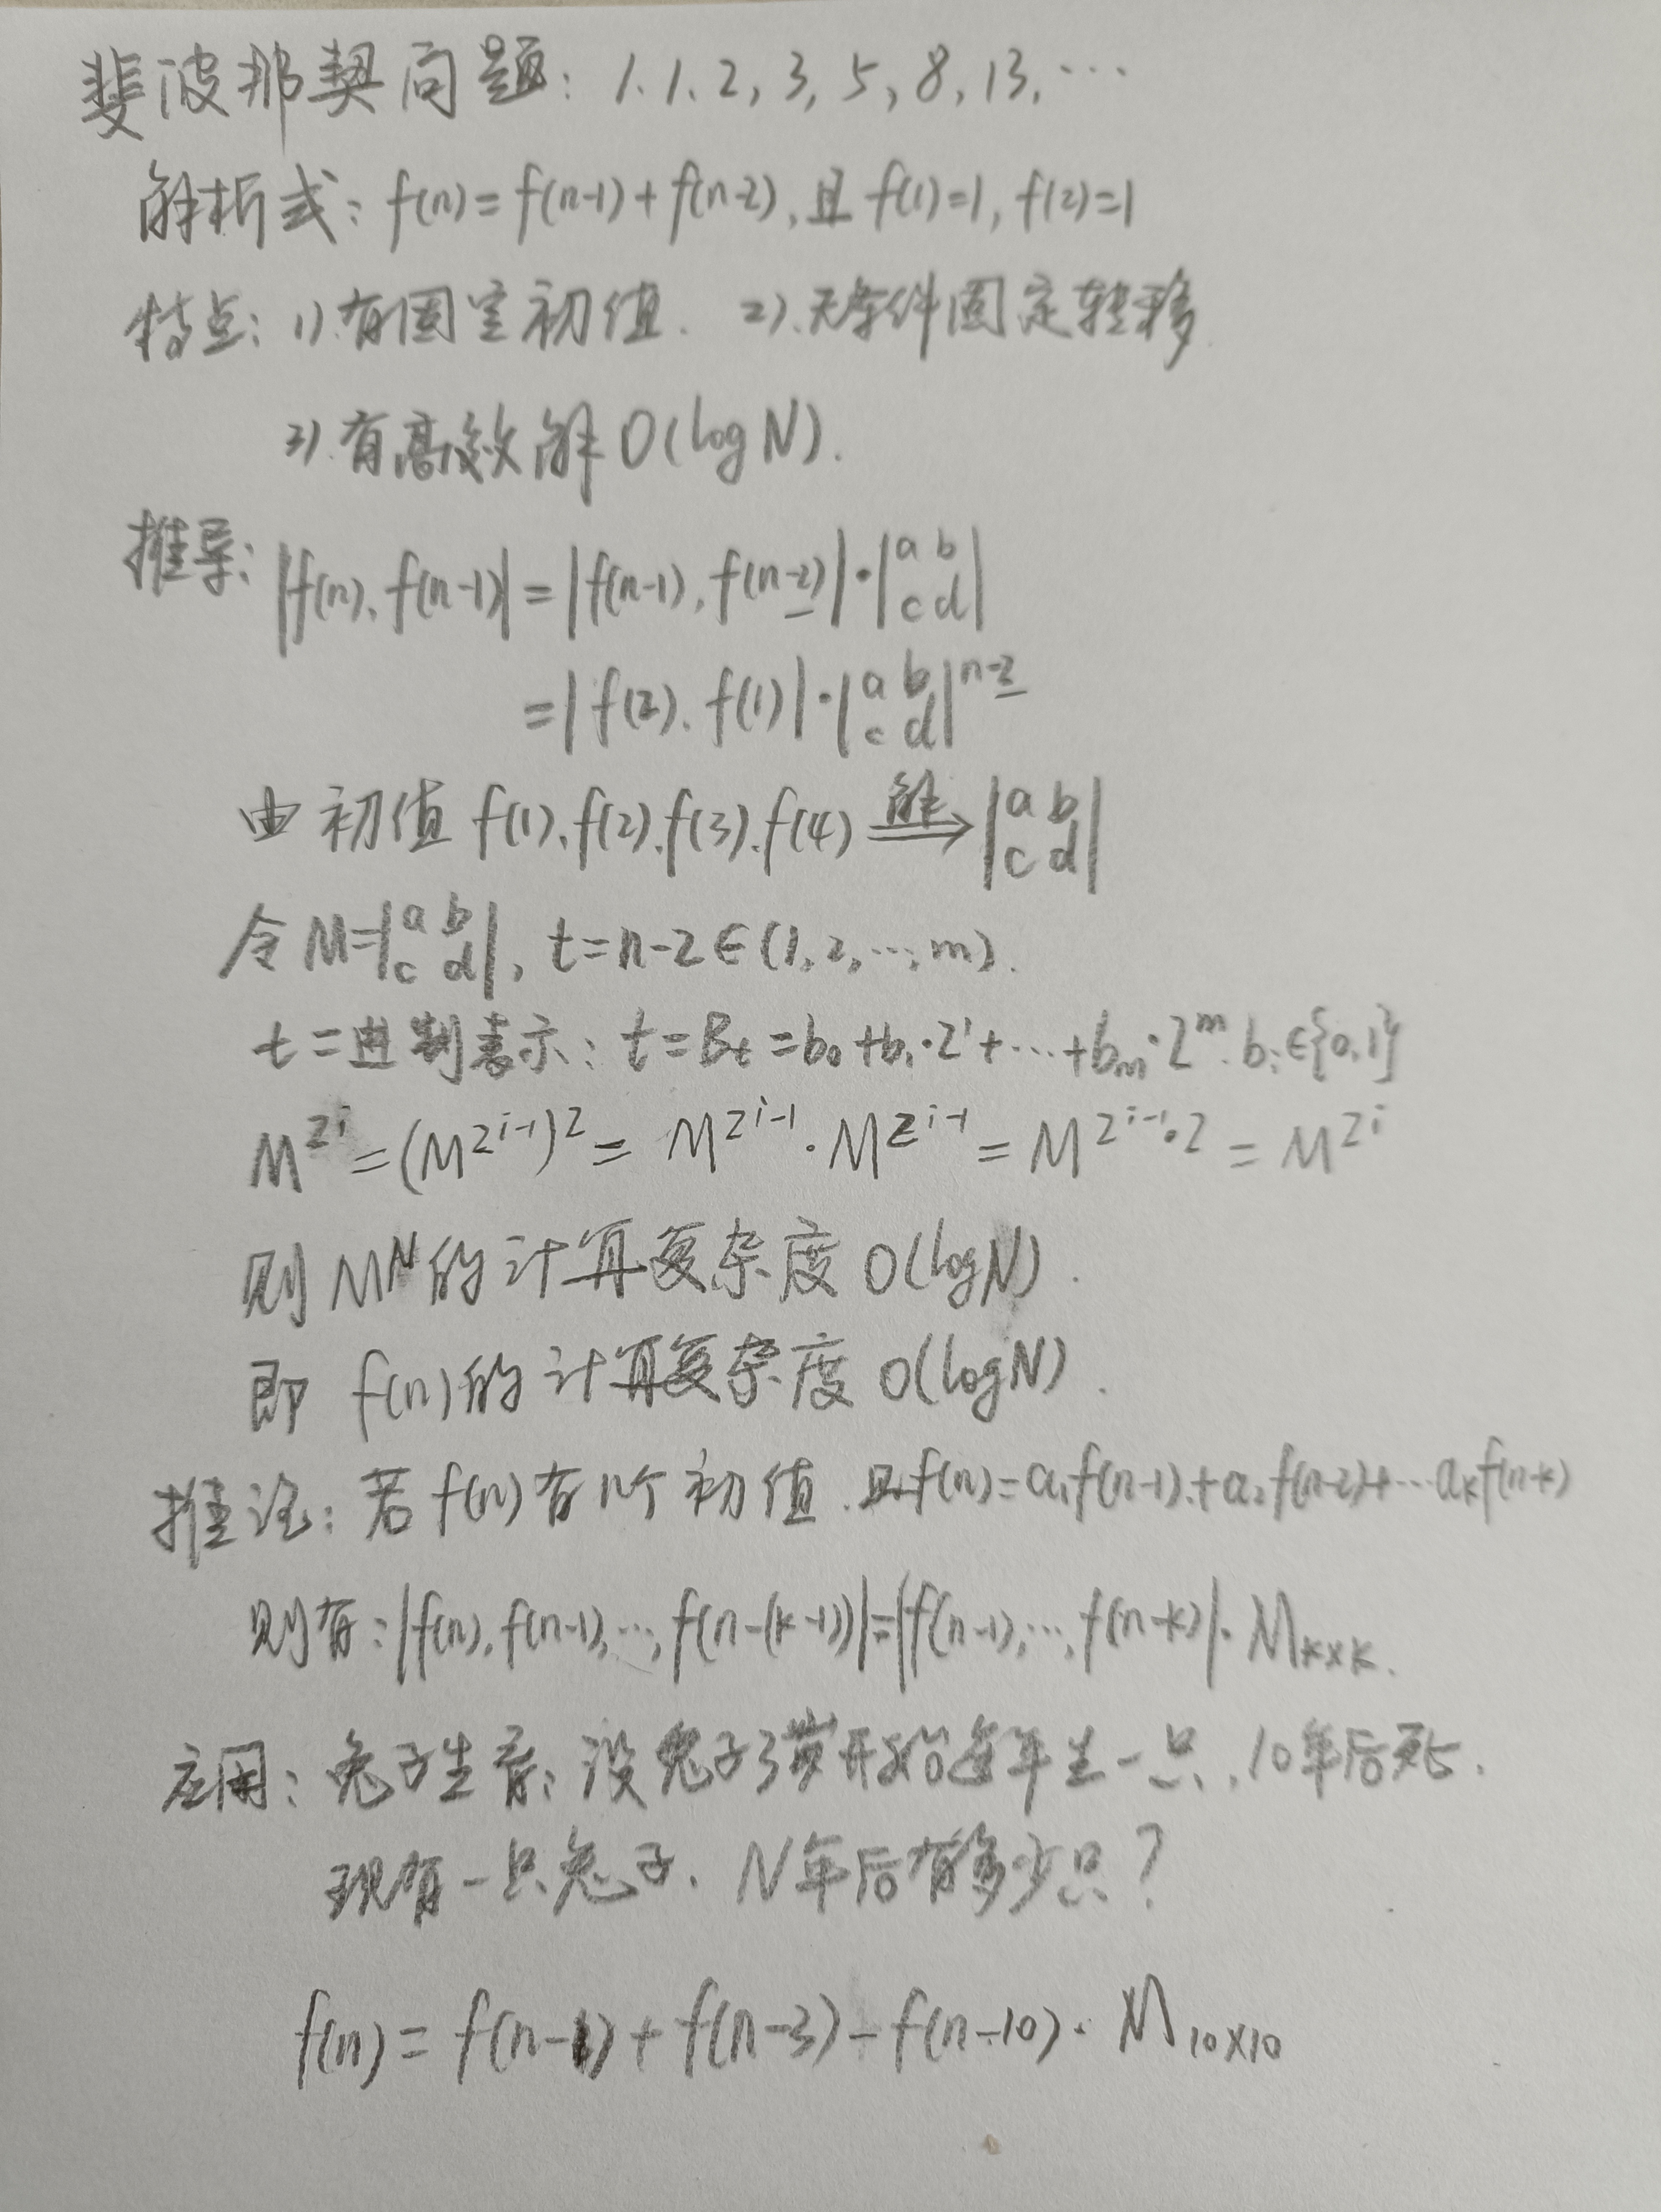 斐波那契问题: 1、1、2, 3, 5, 8, 13, …
解析式: f(n) = f(n-1) + f(n-2), 且 f(1)=1, f(2)=1
特点: 1).有固定初值. 2).无条件固定转移.
3).有高效解 O(logN).
推导: |f(n), f(n-1)| = |f(n-1), f(n-2)|·|a b c d|
= |f(2), f(1)|·|a b c d|^(n-2)
由初值 f(1), f(2), f(3), f(4) 解⟹ |a b c d|
令 M=|a b c d|, t=n-2∈(1, 2, …, m).
t二进制表示: t=Bt=b₀+b₁·2¹+…+bₘ·2ᵐ, bᵢ∈{0,1}
M^(2^i) = (M^(2^(i-1)))² = M^(2^(i-1))·M^(2^(i-1)) = M^(2^(i-1)·2) = M^(2^i)
则 M^N 的计算复杂度 O(logN).
即 f(n) 的计算复杂度 O(logN).
推论: 若 f(n) 有 个初值, 且 f(n)=a₁f(n-1)+a₂f(n-2)+…aₖf(n-k)
则有: |f(n), f(n-1), …, f(n-(k-1))|=|f(n-1), …, f(n-k)|·M_{k×k}.
应用: 兔子生育: 设兔子3岁开始每年生一只, 10年后死.
现有一只兔子, N年后有多少只?
f(n) = f(n-1) + f(n-3) - f(n-10). M_{10×10}